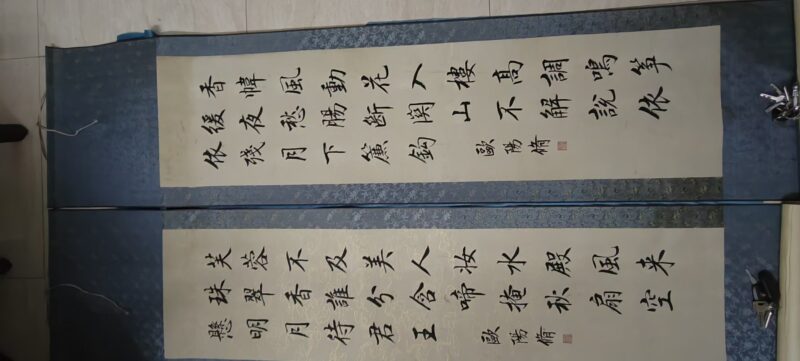 香幃風動花入樓高調鳴箏
緩夜愁腸斷関山不解說依
依殘月下簾鈎
歐陽脩
芙蓉不及美人妝水殿風来
珠翠香誰分含啼掩秋扇空
懸明月待君王
歐陽脩